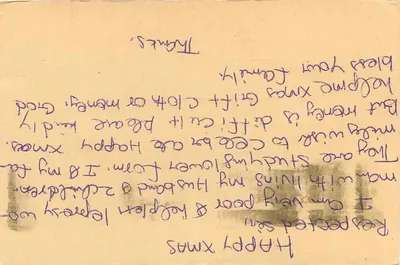 HAPPY XMAS
Respected Sir,
I am very poor & helpless leprosy wo-
man with living my Husband & 2 children.
They are studying lower form. I & my fa-
milies wish to cele bar ate Happy Xmas.
But money is difficult please kindly
helpme Xmas Gift Cloth or money. God
bless your family.
Thanks.